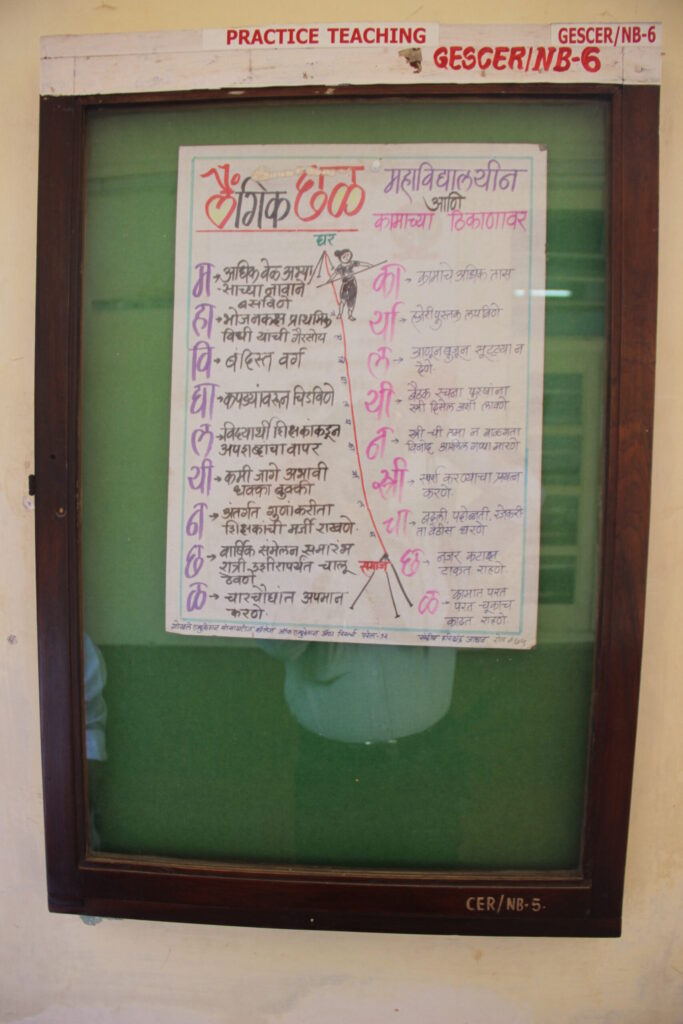 PRACTICE TEACHING
GESCER/NB-6
GESCER/NB-6
लैंगिक छळ
महाविद्यालयीन
आणि
कामाच्या ठिकाणावर
घर
म → अधिक वेळ अभ्या
साच्या नावाने
बसविणे
हा → भोजनकक्ष प्राथमिक
विधी याची गैरसोय
वि → बंदिस्त वर्ग
द्या → कपड्यांवरुन चिडविणे
ल → विद्यार्थी शिक्षकांकडून
अपशब्दाचा वापर
यी → कमी जागे अभावी
धक्का बुक्की
न → अंतर्गत गुणांकरीता
शिक्षकाची मर्जी राखणे.
छ → वार्षिक संमेलन समारंभ
रात्री उशीरापर्यंत चालू
ठेवणे
ळ → चारचौघांत अपमान
करणे.
का → कामाचे अधिक तास
र्या → हजेरीपुस्तक लपविणे
ल → जाणूनबुजून सुट्ट्या न
देणे
यी → बैठक रचना पुरुषांना
स्त्री दिसेल अशी लावणे
न → स्त्री ची तमा न बाळगता
विनोद गप्पा मारणे
स्त्री → स्पर्श करण्याचा प्रयत्न
करणे
चा → बदली, पदोन्नती,
वेठीस धरणे
छ → नजर कटाक्ष
टाकत राहणे
ळ → कामात परत
परत चूकाच
काढत राहणे
समाज
CER/NB-5.